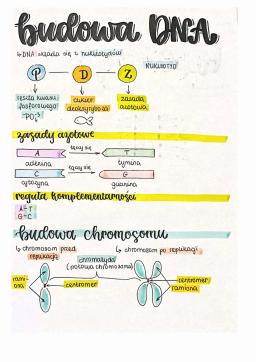 budowa DNA
↳ DNA składa się z nukleotydów
NUKLEOTYD
P D Z
reszta kwasu fosforowego cukier deoksyryboza zasada azotowa
PO₄³⁻
zasady azotowe
A łączy się T
adenina tymina
C łączy się G
cytozyna guanina
reguła komplementarności
A=T
G≡C
budowa chromosomu
↳ chromosom przed replikacją ↳ chromosom po replikacji
chromatyda
(połowa chromosomu)
ramiona centromer centromer
ramiona